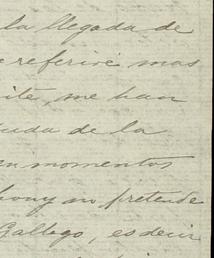 la llegada de
referiré mas
ite, me han
uda de la
en momentos
hony no pretende
Gallego, es decir